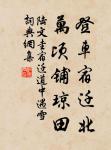 登車宿迁北
萬頃鋪琼田
陆文圭宿迁道中遇雪
詞典網集